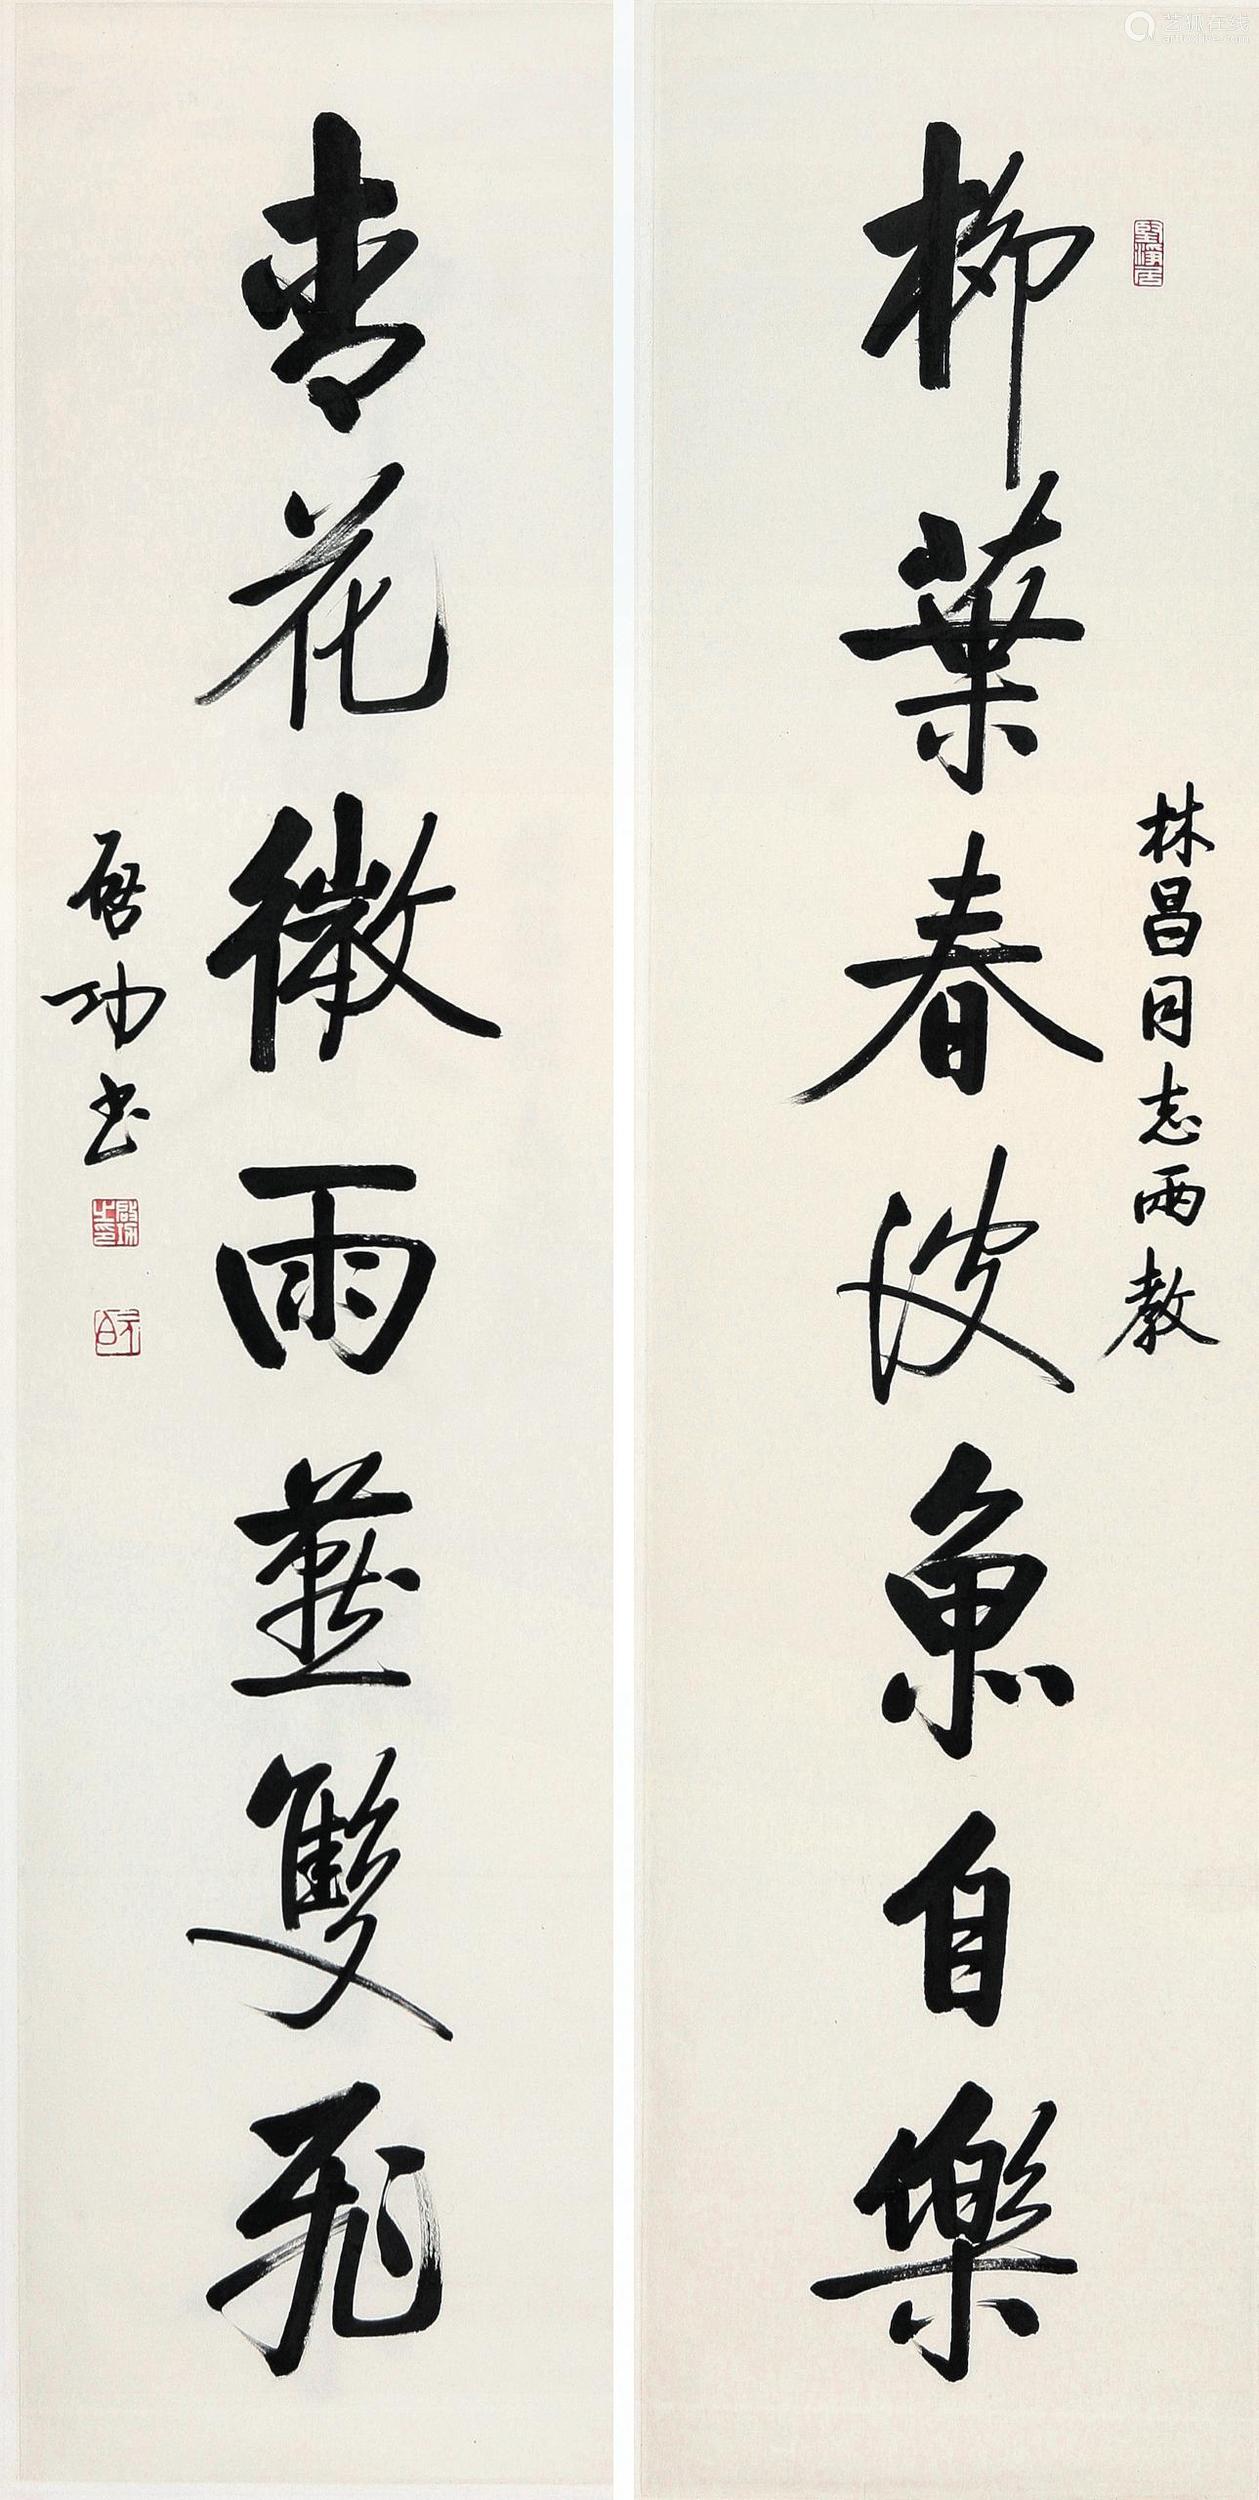 柳葉春波魚自樂
林昌同志兩教
堅淨居
杏花微雨燕雙飛
啟功書
啟功之印
元白
艺狐在线
artfoxlive.com